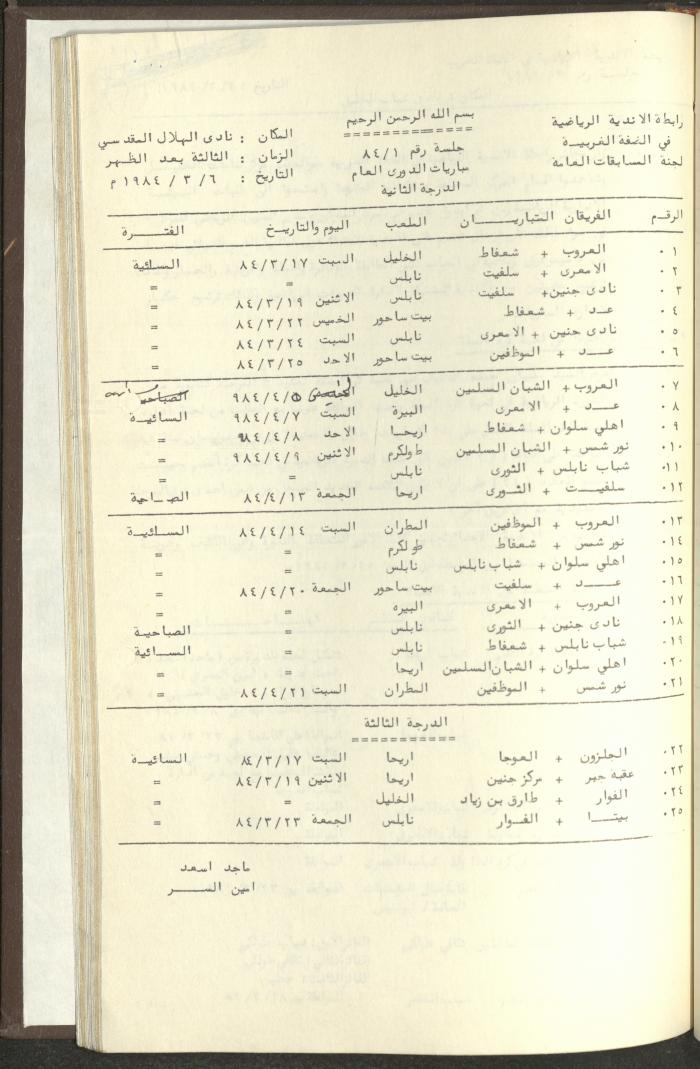 بسم الله الرحمن الرحيم
رابطة الاندية الرياضية
في الضفة الغربية
لجنة المسابقات العامة
جلسة رقم ٨٤/١
مباريات الدورى العام
الدرجة الثانية
المكان : نادى الهلال المقدسي
الزمان : الثالثة بعد الظهر
التاريخ : ٦ / ٣ / ١٩٨٤ م
الرقم الفريقان المتباريان الملعب اليوم والتاريخ الفترة
٠١ العروب + شعفاط الخليل السبت ٨٤/٣/١٧ المسائية
٠٢ الامعرى + سلفيت نابلس = =
٠٣ نادى جنين + سلفيت نابلس الاثنين ٨٤/٣/١٩ =
٠٤ عد + شعفاط بيت ساحور الخميس ٨٤/٣/٢٢ =
٠٥ نادى جنين + الامعرى نابلس السبت ٨٤/٣/٢٤ =
٠٦ عد + الموظفين بيت ساحور الاحد ٨٤/٣/٢٥ =
٠٧ العروب + الشبان المسلمين الخليل الخميس ٩٨٤/٤/٥ الصباحية
٠٨ عد + الامعرى البيرة السبت ٩٨٤/٤/٧ المسائية
٠٩ اهلي سلوان + شعفاط اريحا الاحد ٩٨٤/٤/٨ =
٠١٠ نور شمس + الشبان المسلمين طولكرم الاثنين ٩٨٤/٤/٩ =
٠١١ شباب نابلس + الثورى نابلس = =
٠١٢ سلفيت + الثورى اريحا الجمعة ٨٤/٤/١٣ الصباحية
٠١٣ العروب + الموظفين المطران السبت ٨٤/٤/١٤ المسائية
٠١٤ نور شمس + شعفاط طولكرم = =
٠١٥ اهلي سلوان + شباب نابلس نابلس = =
٠١٦ عد + سلفيت بيت ساحور الجمعة ٨٤/٤/٢٠ =
٠١٧ العروب + الامعرى البيره = =
٠١٨ نادى جنين + الثورى نابلس = الصباحية
٠١٩ شباب نابلس + شعفاط نابلس = المسائية
٠٢٠ اهلي سلوان + الشبان المسلمين اريحا = =
٠٢١ نور شمس + الموظفين المطران السبت ٨٤/٤/٢١ =
الدرجة الثالثة
٠٢٢ الجلزون + العوجا اريحا السبت ٨٤/٣/١٧ المسائية
٠٢٣ عقبه جبر + مركز جنين اريحا الاثنين ٨٤/٣/١٩ =
٠٢٤ الفوار + طارق بن زياد الخليل = =
٠٢٥ بيتا + الفوار نابلس الجمعة ٨٤/٣/٢٣ =
ماجد اسعد
امين السر